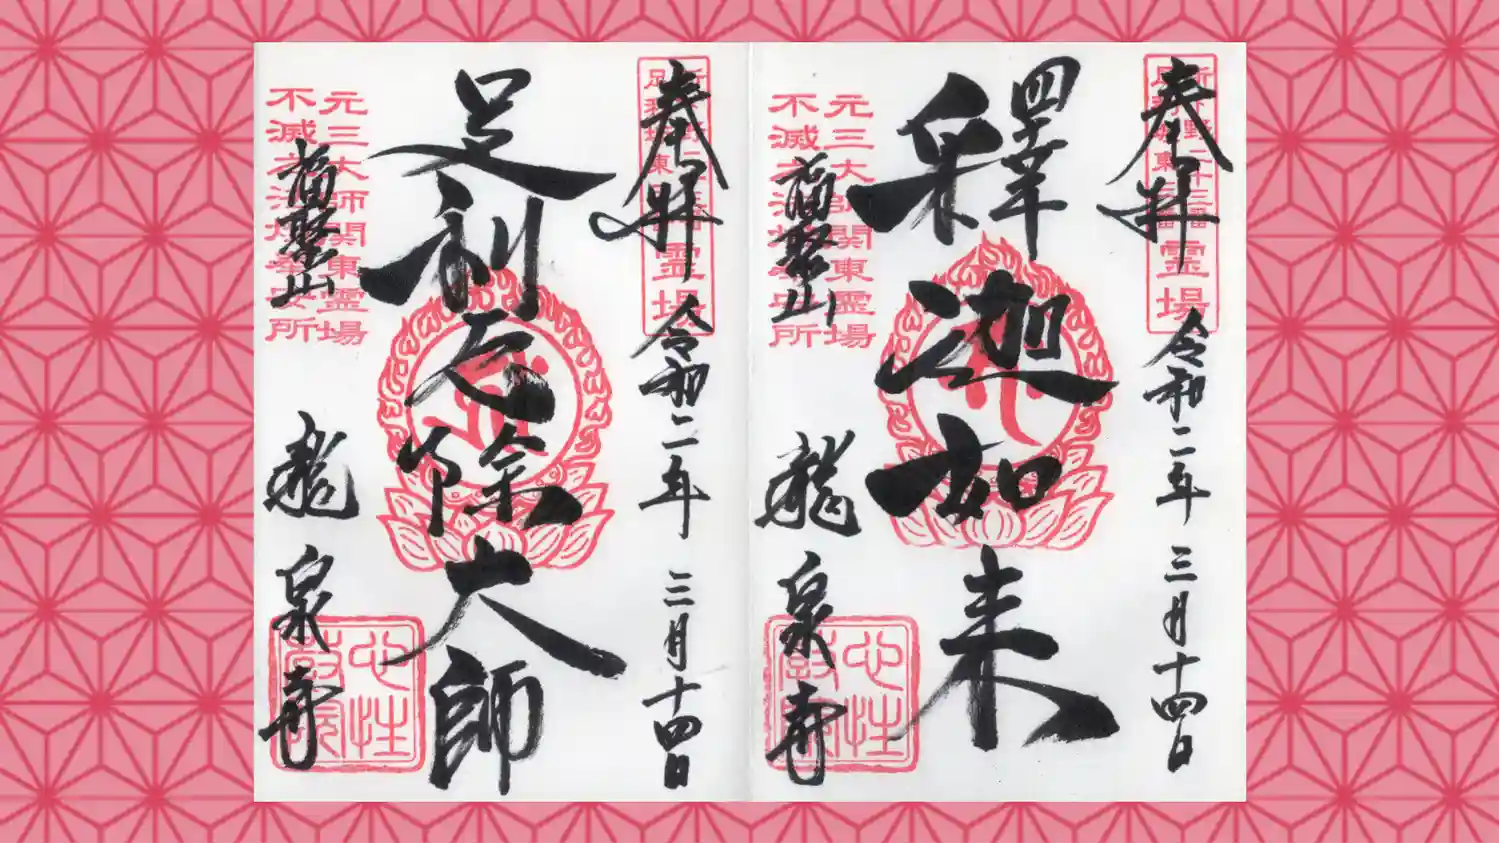 奉拝
霊場
令和二年 三月十四日
釋迦如来
元三大師関東霊場
不滅之法燈奉安所
福聚山
龍泉寺
奉拝
霊場
令和二年 三月十四日
足利厄除大師
元三大師関東霊場
不滅之法燈奉安所
福聚山
龍泉寺